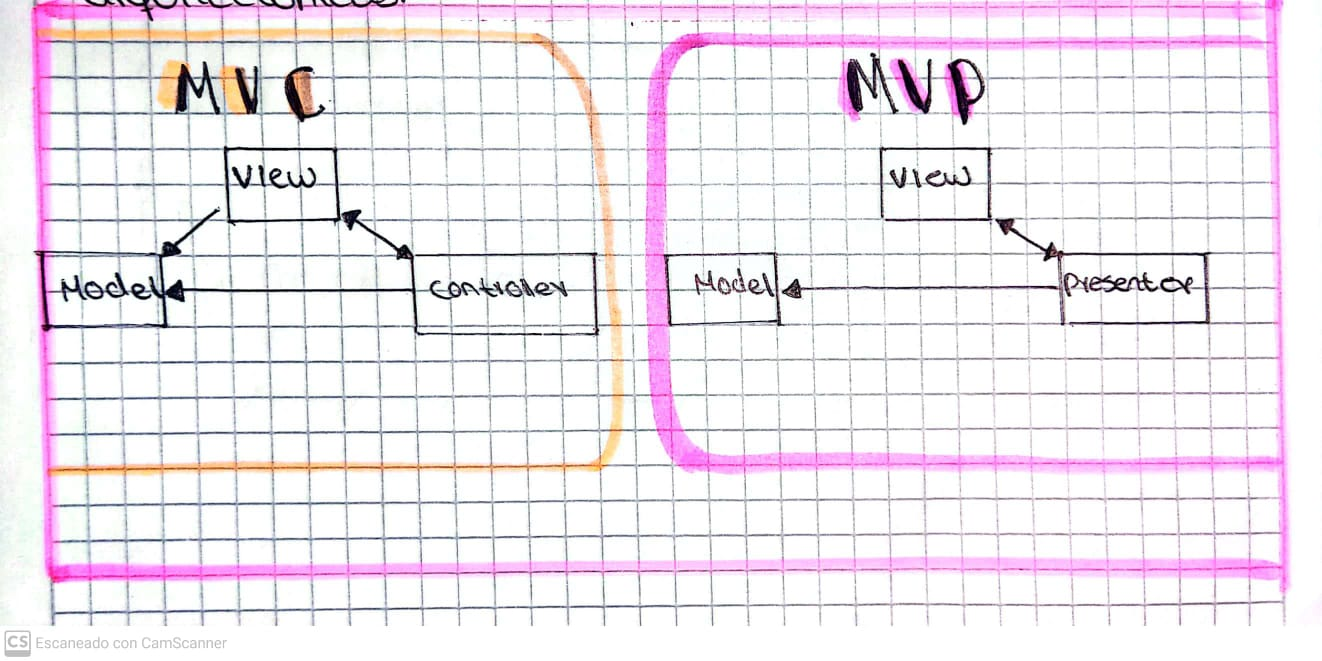 MVC
View
Model
Controler
MVP
View
Model
Presentor
CS Escaneado con CamScanner